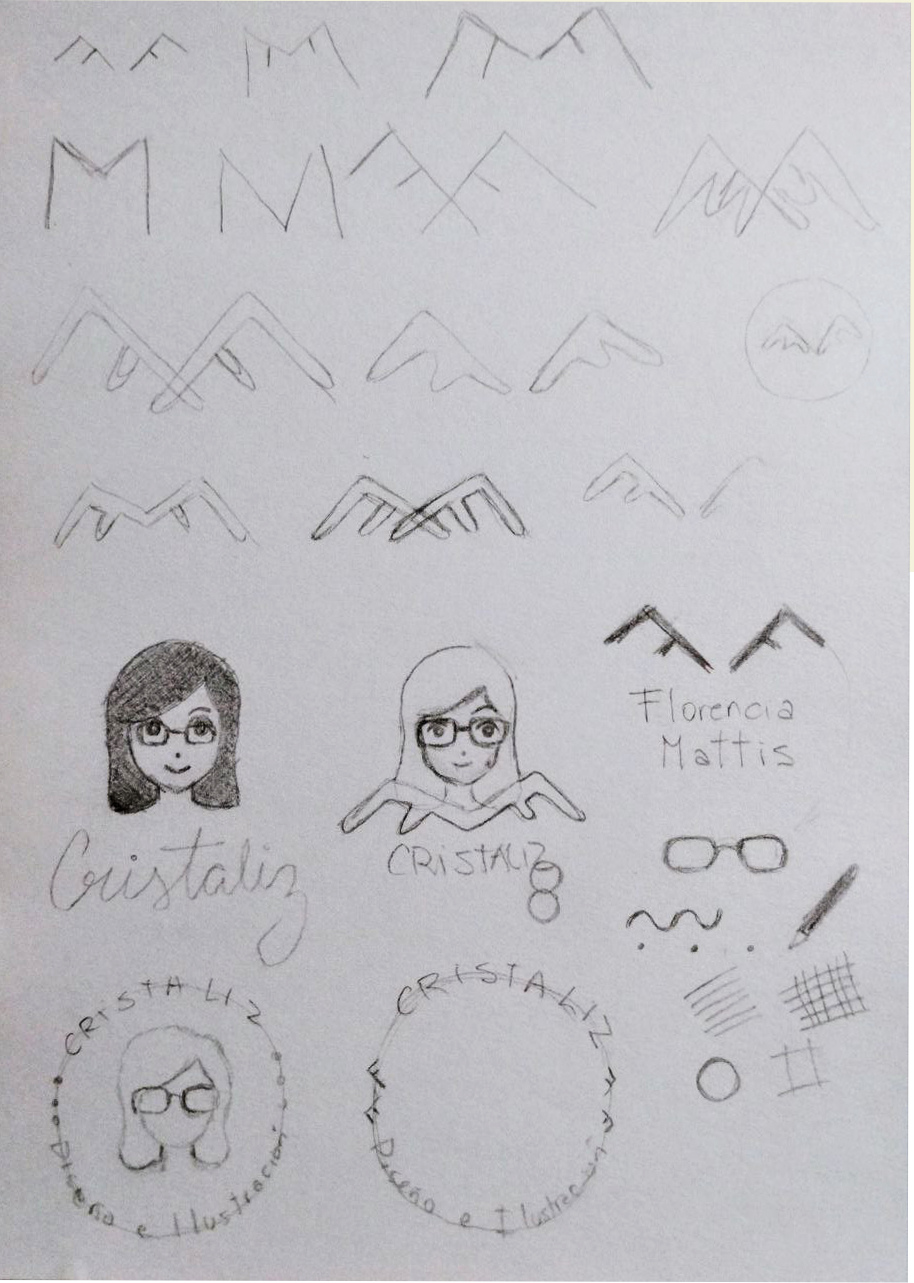 M
M
Florencia
Mattis
Cristaliz
CRISTALIZ
CRISTALIZ
Diseño e Ilustración
CRISTALIZ
Diseño e Ilustración